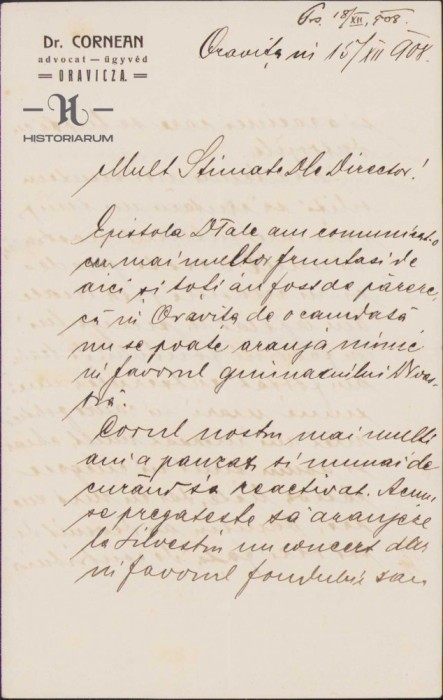 Prs. 18/XII, 908.
Dr. CORNEAN
advocat — ügyvéd
ORAVICZA.
HISTORIARUM
Oravița in 15/XII 908.
Mult Stimate Dle Director!
Epistola D Tale am comunicat-o
cu mai multor fruntasi de
aici și toți au fost de părere,
că in Oravița de o camdată
nu se poate aranja nimic
in favorul gimnaziului Noas-
tră.
Corul nostru mai multi
ani a pauzat si numai de
curând s'a reactivat. Acum
se pregateste să aranjeze
la Silvestru un concert dar
in favorul fondului sau